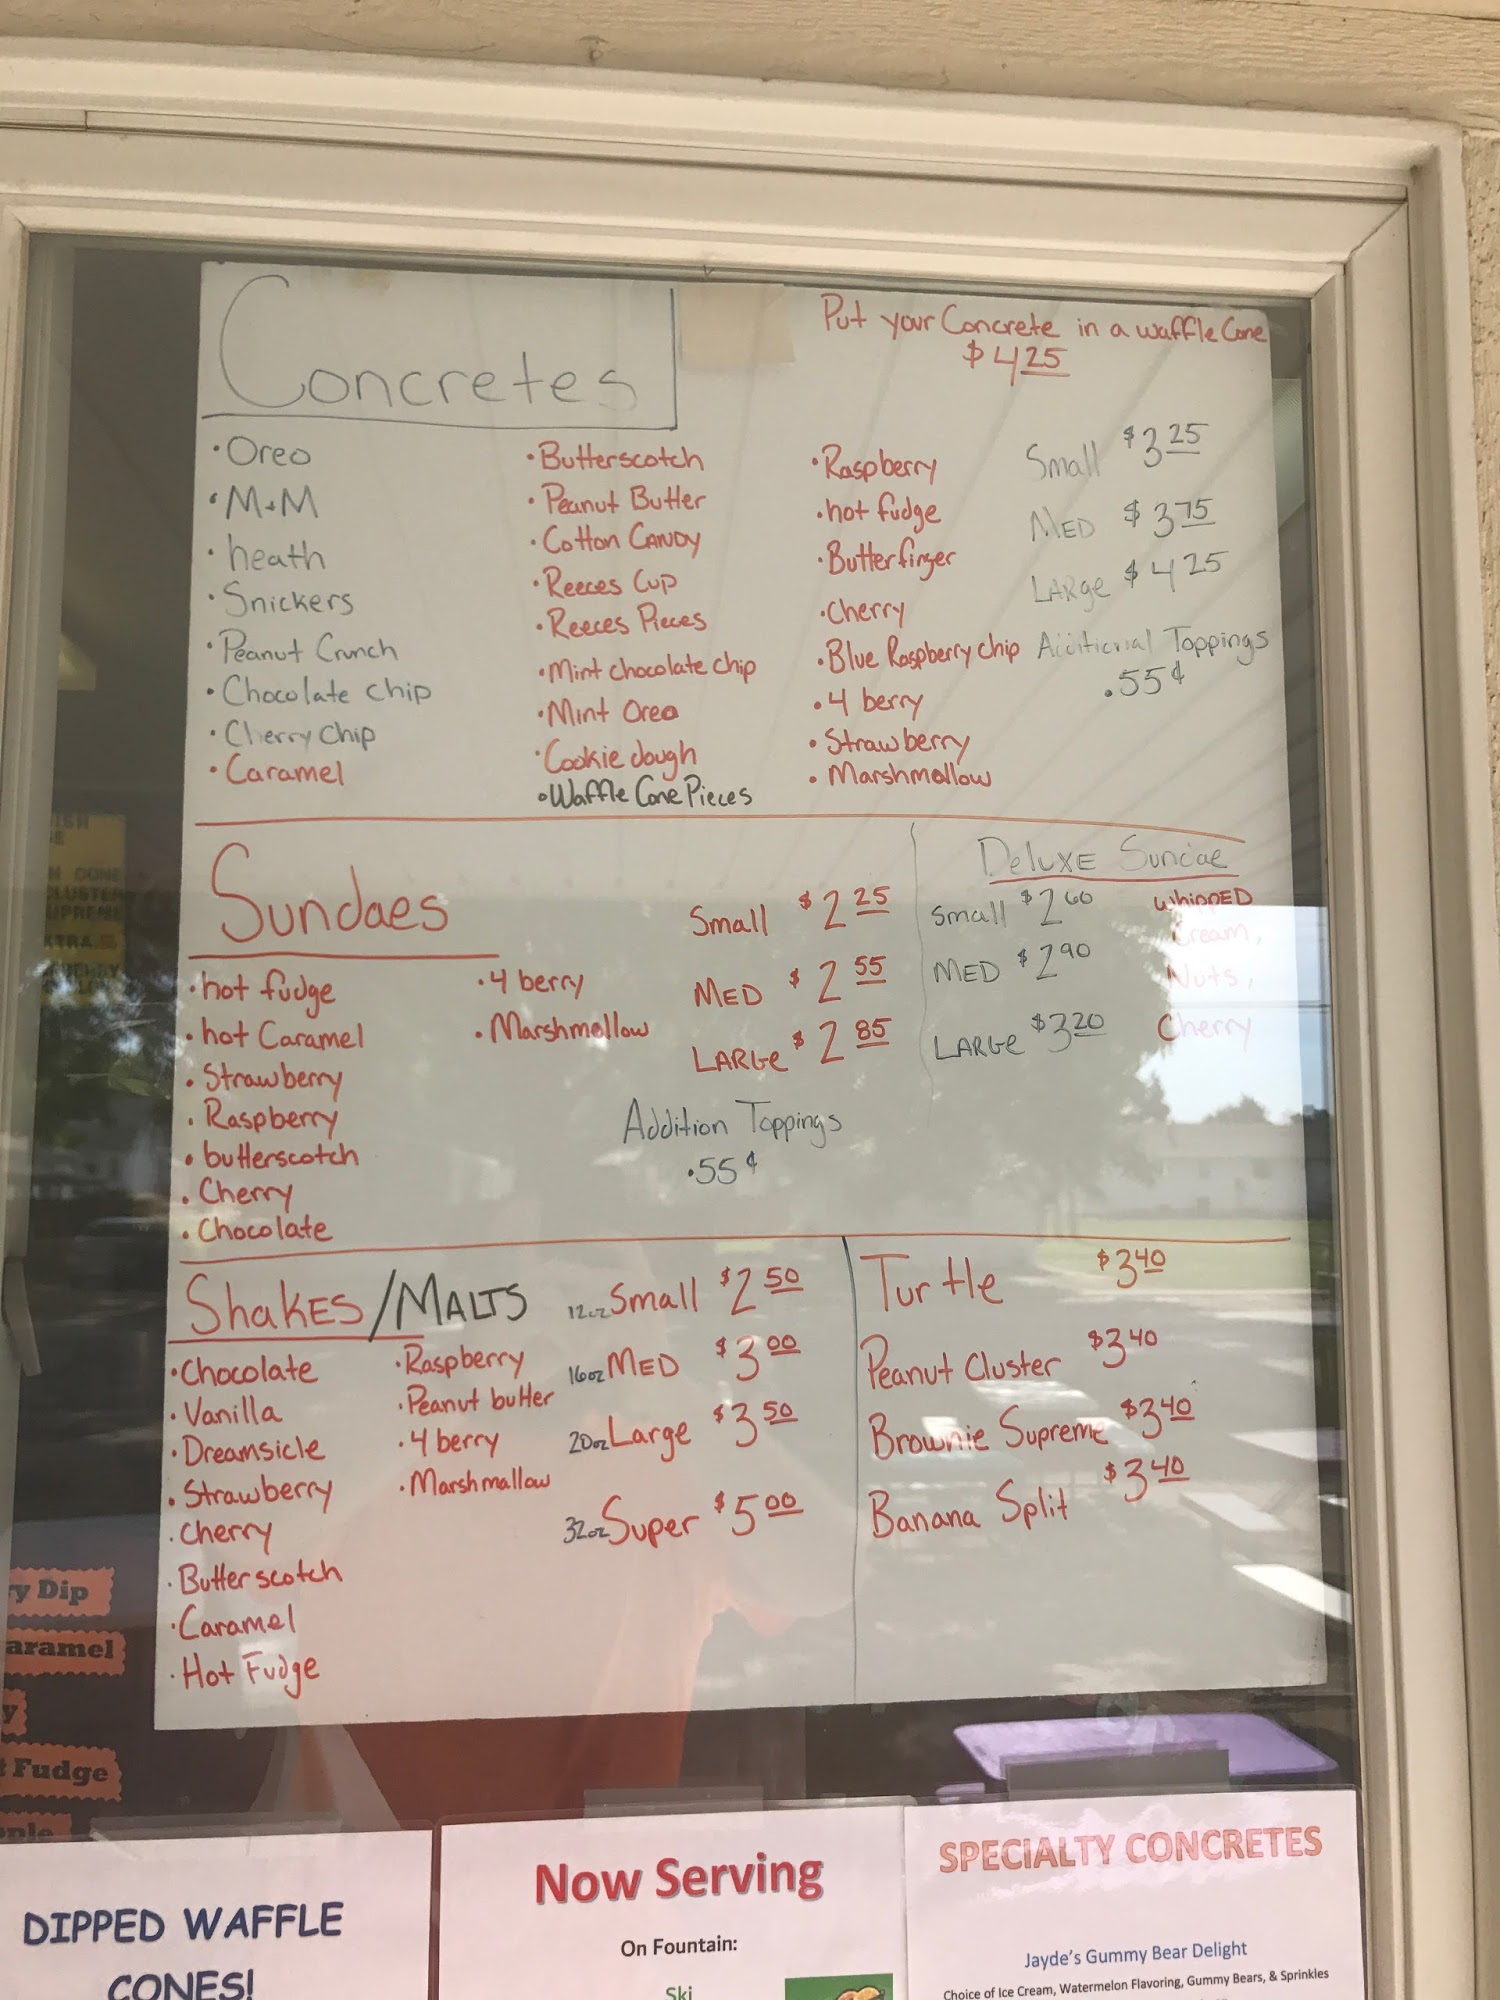 Concretes
Put your Concrete in a waffle Cone
$4.25
• Oreo
• M+M
• heath
• Snickers
• Peanut Crunch
• Chocolate chip
• Cherry chip
• Caramel
• Butterscotch
• Peanut Butter
• Cotton Candy
• Reeces Cup
• Reeces Pieces
• Mint chocolate chip
• Mint Oreo
• Cookie dough
• Waffle Cone Pieces
• Raspberry
• hot fudge
• Butterfinger
• Cherry
• Blue Raspberry chip
• 4 berry
• Strawberry
• Marshmallow
Small $3 25
MED $3 75
LARge $4 25
Additional Toppings
.55¢
Sundaes
• hot fudge
• hot Caramel
• Strawberry
• Raspberry
• butterscotch
• Cherry
• Chocolate
• 4 berry
• Marshmallow
Small $2 25
MED $2 55
LARGe $2 85
Addition Toppings
.55¢
Deluxe Sundae
Small $2 60
MED $2 90
LARGe $3 20
whipped
Cream,
Nuts,
Cherry
Shakes/MALTS
• Chocolate
• Vanilla
• Dreamsicle
• Strawberry
• Cherry
• Butterscotch
• Caramel
• Hot Fudge
• Raspberry
• Peanut butter
• 4 berry
• Marshmallow
12oz Small $2 50
16oz MED $3 00
20oz Large $3 50
32oz Super $5 00
Turtle $3 40
Peanut Cluster $3 40
Brownie Supreme $3 40
Banana Split $3 40
CONE
CLUSTER
SUPREME
XTRA
y Dip
aramel
y
Fudge
DIPPED WAFFLE
CONES!
Now Serving
On Fountain:
Ski
SPECIALTY CONCRETES
Jayde's Gummy Bear Delight
Choice of Ice Cream, Watermelon Flavoring, Gummy Bears, & Sprinkles